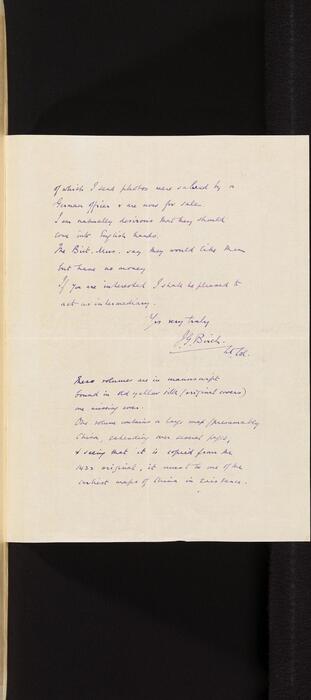 of which I send photos were salved by a
German officer & are now for sale.
I am naturally desirous that they should
come into English hands.
The Brit. Mus. say they would like them
but have no money
If you are interested I shall be pleased to
act as intermediary.
Yrs very truly
J.G. Birch.
Lt Col.
These volumes are in manuscript
bound in old yellow silk (original covers)
one missing cover.
One volume contains a large map (presumably
China, extending over several pages,
& seeing that it is copied from the
1433 original, it must be one of the
earliest maps of China in existence.